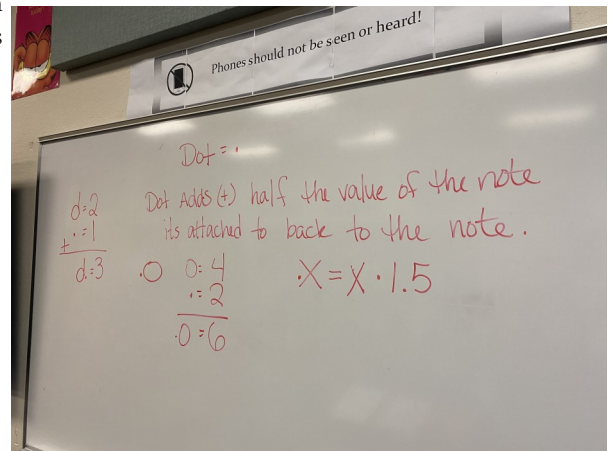 Phones should not be seen or heard!
Dot = .
Dot Adds (+) half the value of the note
its attached to back to the note.
d=2
.=1
+
d.=3
.O
O=4
.=2
.O=6
.X=X·1.5